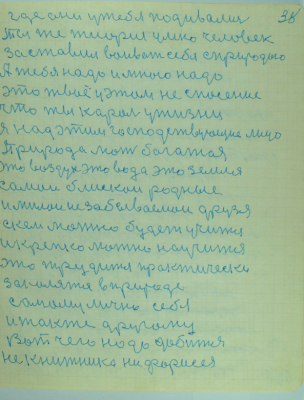 38
где они у тебя подевались
Ты же творил умно человек
заставил воивать себя с природаю
А тебя надо и много надо
это твоё у этом не спосение
что ты карол у жизни
я над этим господствующие лицо
Природа мать богатая
это воздух это вода это земля
самаи блискаи родные
и милаи незабываемаи друзя
с кем можно будет учится
и крепко можно научится
это трудится практически
закалятся в природе
самому лично себя
и также другому
Вот чего надо добится
не книжника ни фарисея